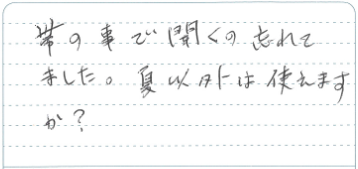 帯の事で聞くの忘れて
ました。夏以外は使えます
か？